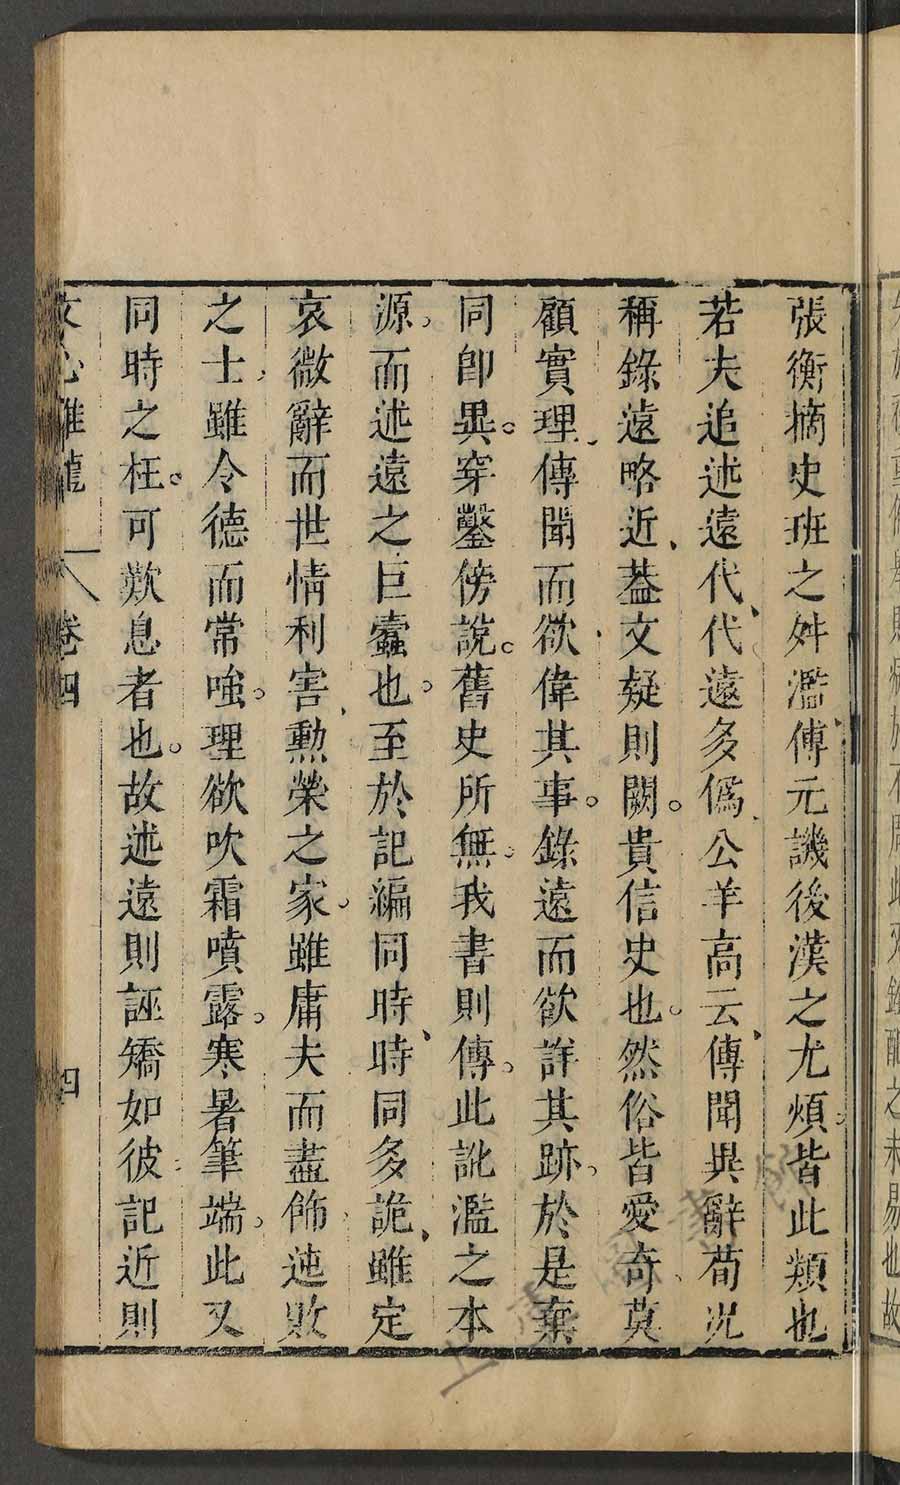 張衡摘史班之舛濫傅元譏後漢之尤煩皆此類也
若夫追述遠代代遠多僞公羊高云傳聞異辭荀况
稱錄遠略近葢文疑則闕貴信史也然俗皆愛奇莫
顧實理傳聞而欲偉其事錄遠而欲詳其跡於是棄
同即異穿鑿傍說舊史所無我書則傳此訛濫之本
源而述遠之巨蠹也至於記編同時時同多詭雖定
哀微辭而世情利害勲榮之家雖庸夫而盡飾迍敗
之士雖令德而常嗤理欲吹霜噴露寒暑筆端此又
同時之枉可歎息者也故述遠則誣矯如彼記近則
文心雕龍 卷四 四